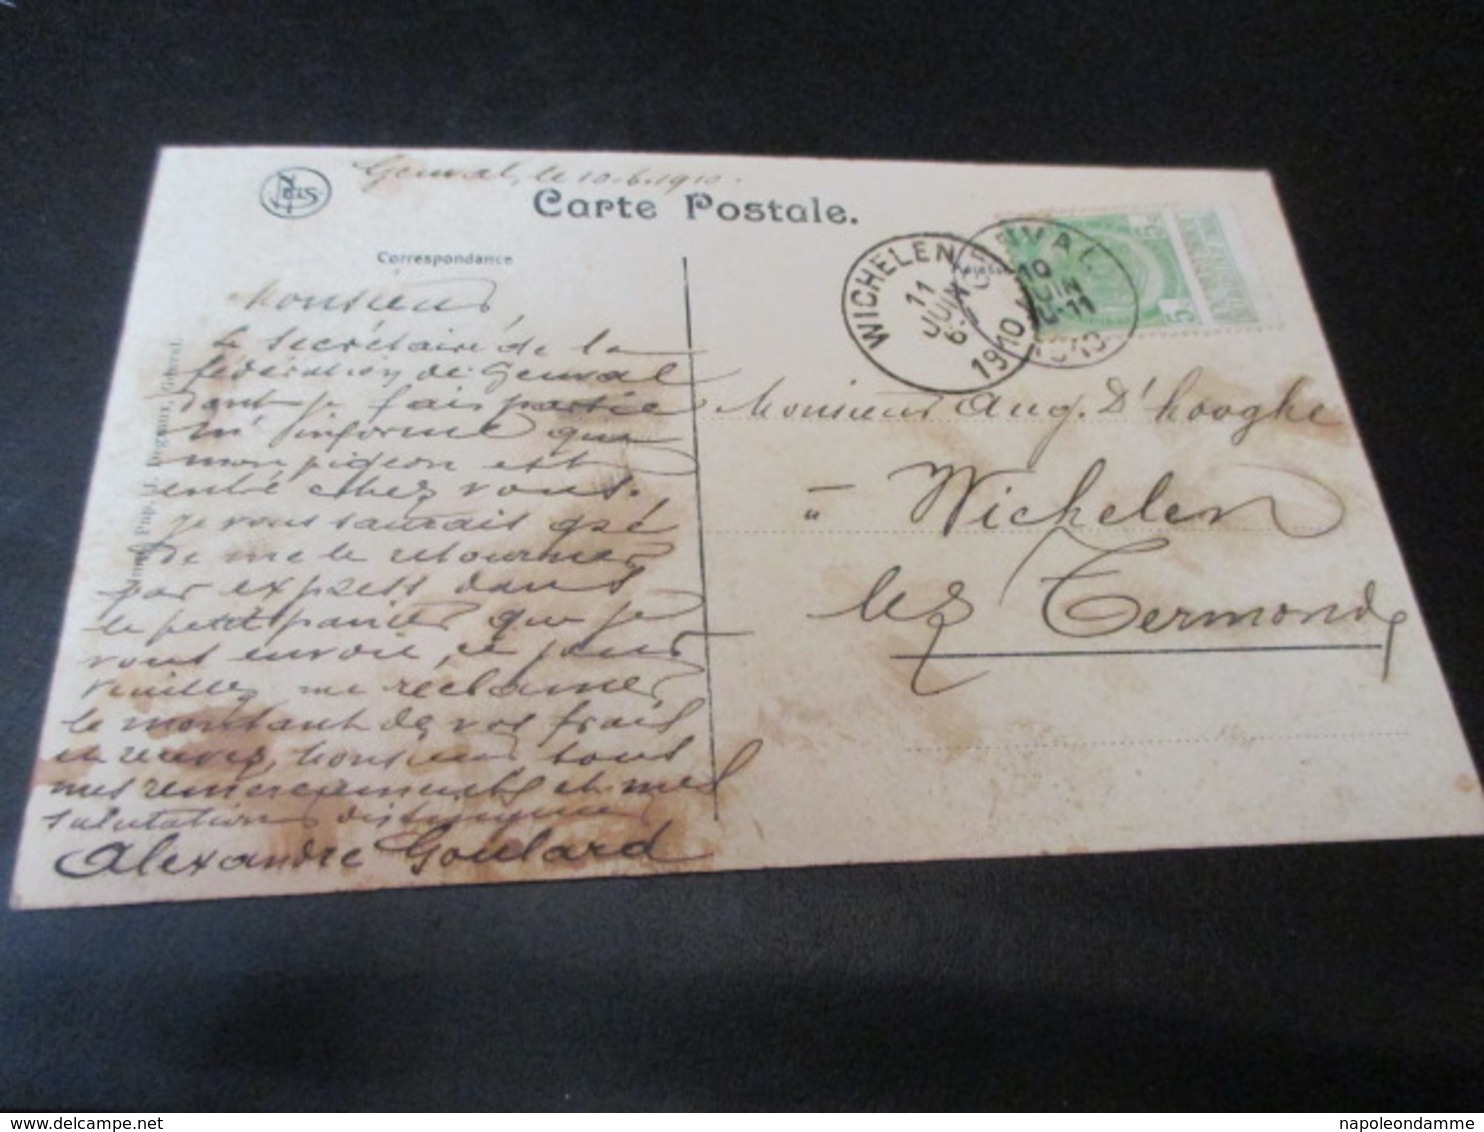 Nels
Genval, le 10.6.1910.
Carte Postale.
Correspondance
Monsieur
Le secrétaire de la
fédération de Genval
dont je fais partie
m'informe que
mon pigeon est
entré chez vous.
je vous saurais gré
de me le retourner
par express dans
le petit panier que je
vous envoie,
veuillez me réclamer
le montant de vos frais
et recevez, Monsieur tous
mes remerciements et mes
salutations distinguées
Alexandre Goulard
Degraux, Genval.
WICHELEN
11
JUIN
1910
GENVAL
10
JUIN
1910
5c
5c
Monsieur Aug. D'hooghe
à Wichelen
lez Termonde
napoleondamme